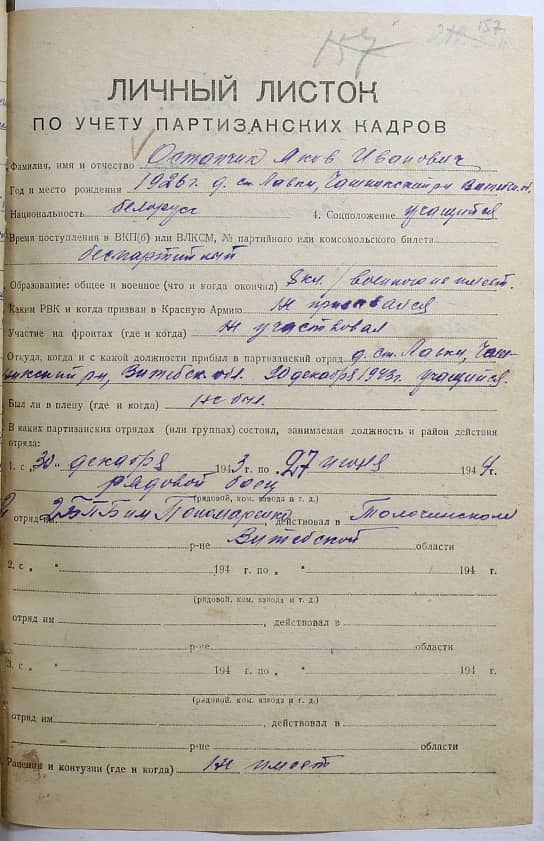 157
157
ЛИЧНЫЙ ЛИСТОК
ПО УЧЕТУ ПАРТИЗАНСКИХ КАДРОВ
Фамилия, имя и отчество Остапчик Яков Иванович
Год и место рождения 1926 г. д. ст. Лавки, Чашникский р-н Витебск. об.
Национальность белорусс 4. Соцположение учащийся
Время поступления в ВКП(б) или ВЛКСМ, № партийного или комсомольского билета
беспартийный
Образование: общее и военное (что и когда окончил) 8 кл. / военного не имеет.
Каким РВК и когда призван в Красную Армию не призывался
Участие на фронтах (где и когда) не участвовал
Откуда, когда и с какой должности прибыл в партизанский отряд д. ст. Лавки, Чаш-
никский р-н, Витебск. обл. 30 декабря 1943 г. учащийся.
Был ли в плену (где и когда) не был.
В каких партизанских отрядах (или группах) состоял, занимаемая должность и район действия
отряда:
1. с „30" декабря 1943 г. по „27" июня 1944 г.
рядовой боец
(рядовой, ком. взвода и т. д.)
отряд им. 2 БПБ им Пономаренко действовал в Толочинском
р-не Витебской области
2. с „ " 194 г. по „ " 194 г.
(рядовой, ком. взвода и т. д.)
отряд им. , действовал в
р-не области
3. с „ " 194 г. по „ " 194 г.
(рядовой, ком. взвода и т. д.)
отряд им. , действовал в
р-не области
Ранения и контузии (где и когда) не имеет